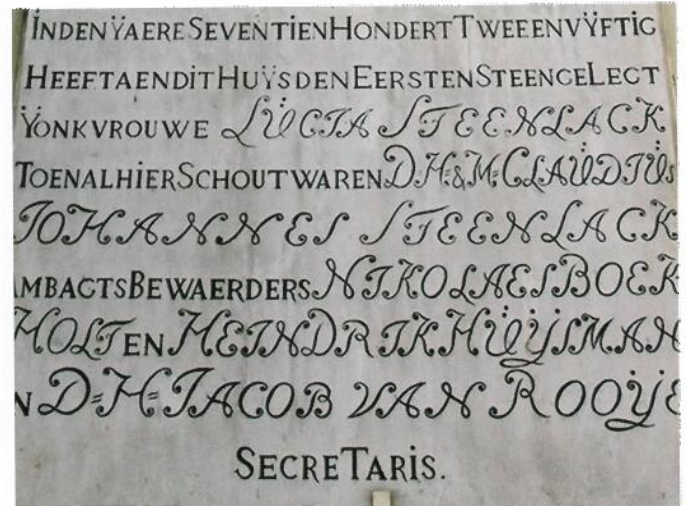 INDENŸAERE SEVENTIEN HONDERT TWEEENVŸFTIG
HEEFTAENDITHUŸSDEN EERSTEN STEENGELEGT
ŸONKVROUWE LÜCIA STEENLACK
TOENALHIER SCHOUTWAREN D.H=&M=CLAÜDIÜS
JOHANNES STEENLACK
AMBAGTSBEWAERDERS NIKOLAES BOEK
HOLT EN HEINDRIK HÜŸSMAN
EN D=H=JACOB VAN ROOŸE
SECRETARIS.